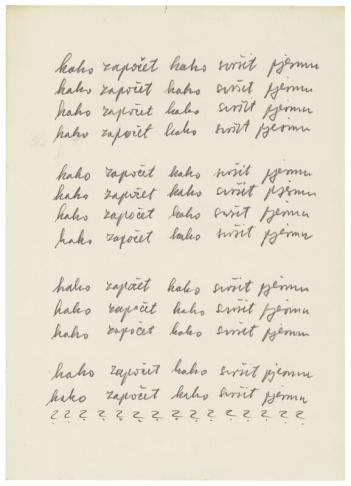 kako započet kako svršit pjesmu
kako započet kako svršit pjesmu
kako započet kako svršit pjesmu
kako započet kako svršit pjesmu
kako započet kako svršit pjesmu
kako započet kako svršit pjesmu
kako započet kako svršit pjesmu
kako započet kako svršit pjesmu
kako započet kako svršit pjesmu
kako započet kako svršit pjesmu
kako započet kako svršit pjesmu
kako započet kako svršit pjesmu
kako započet kako svršit pjesmu
? ? ? ? ? ? ? ? ? ? ? ? ? ? ?